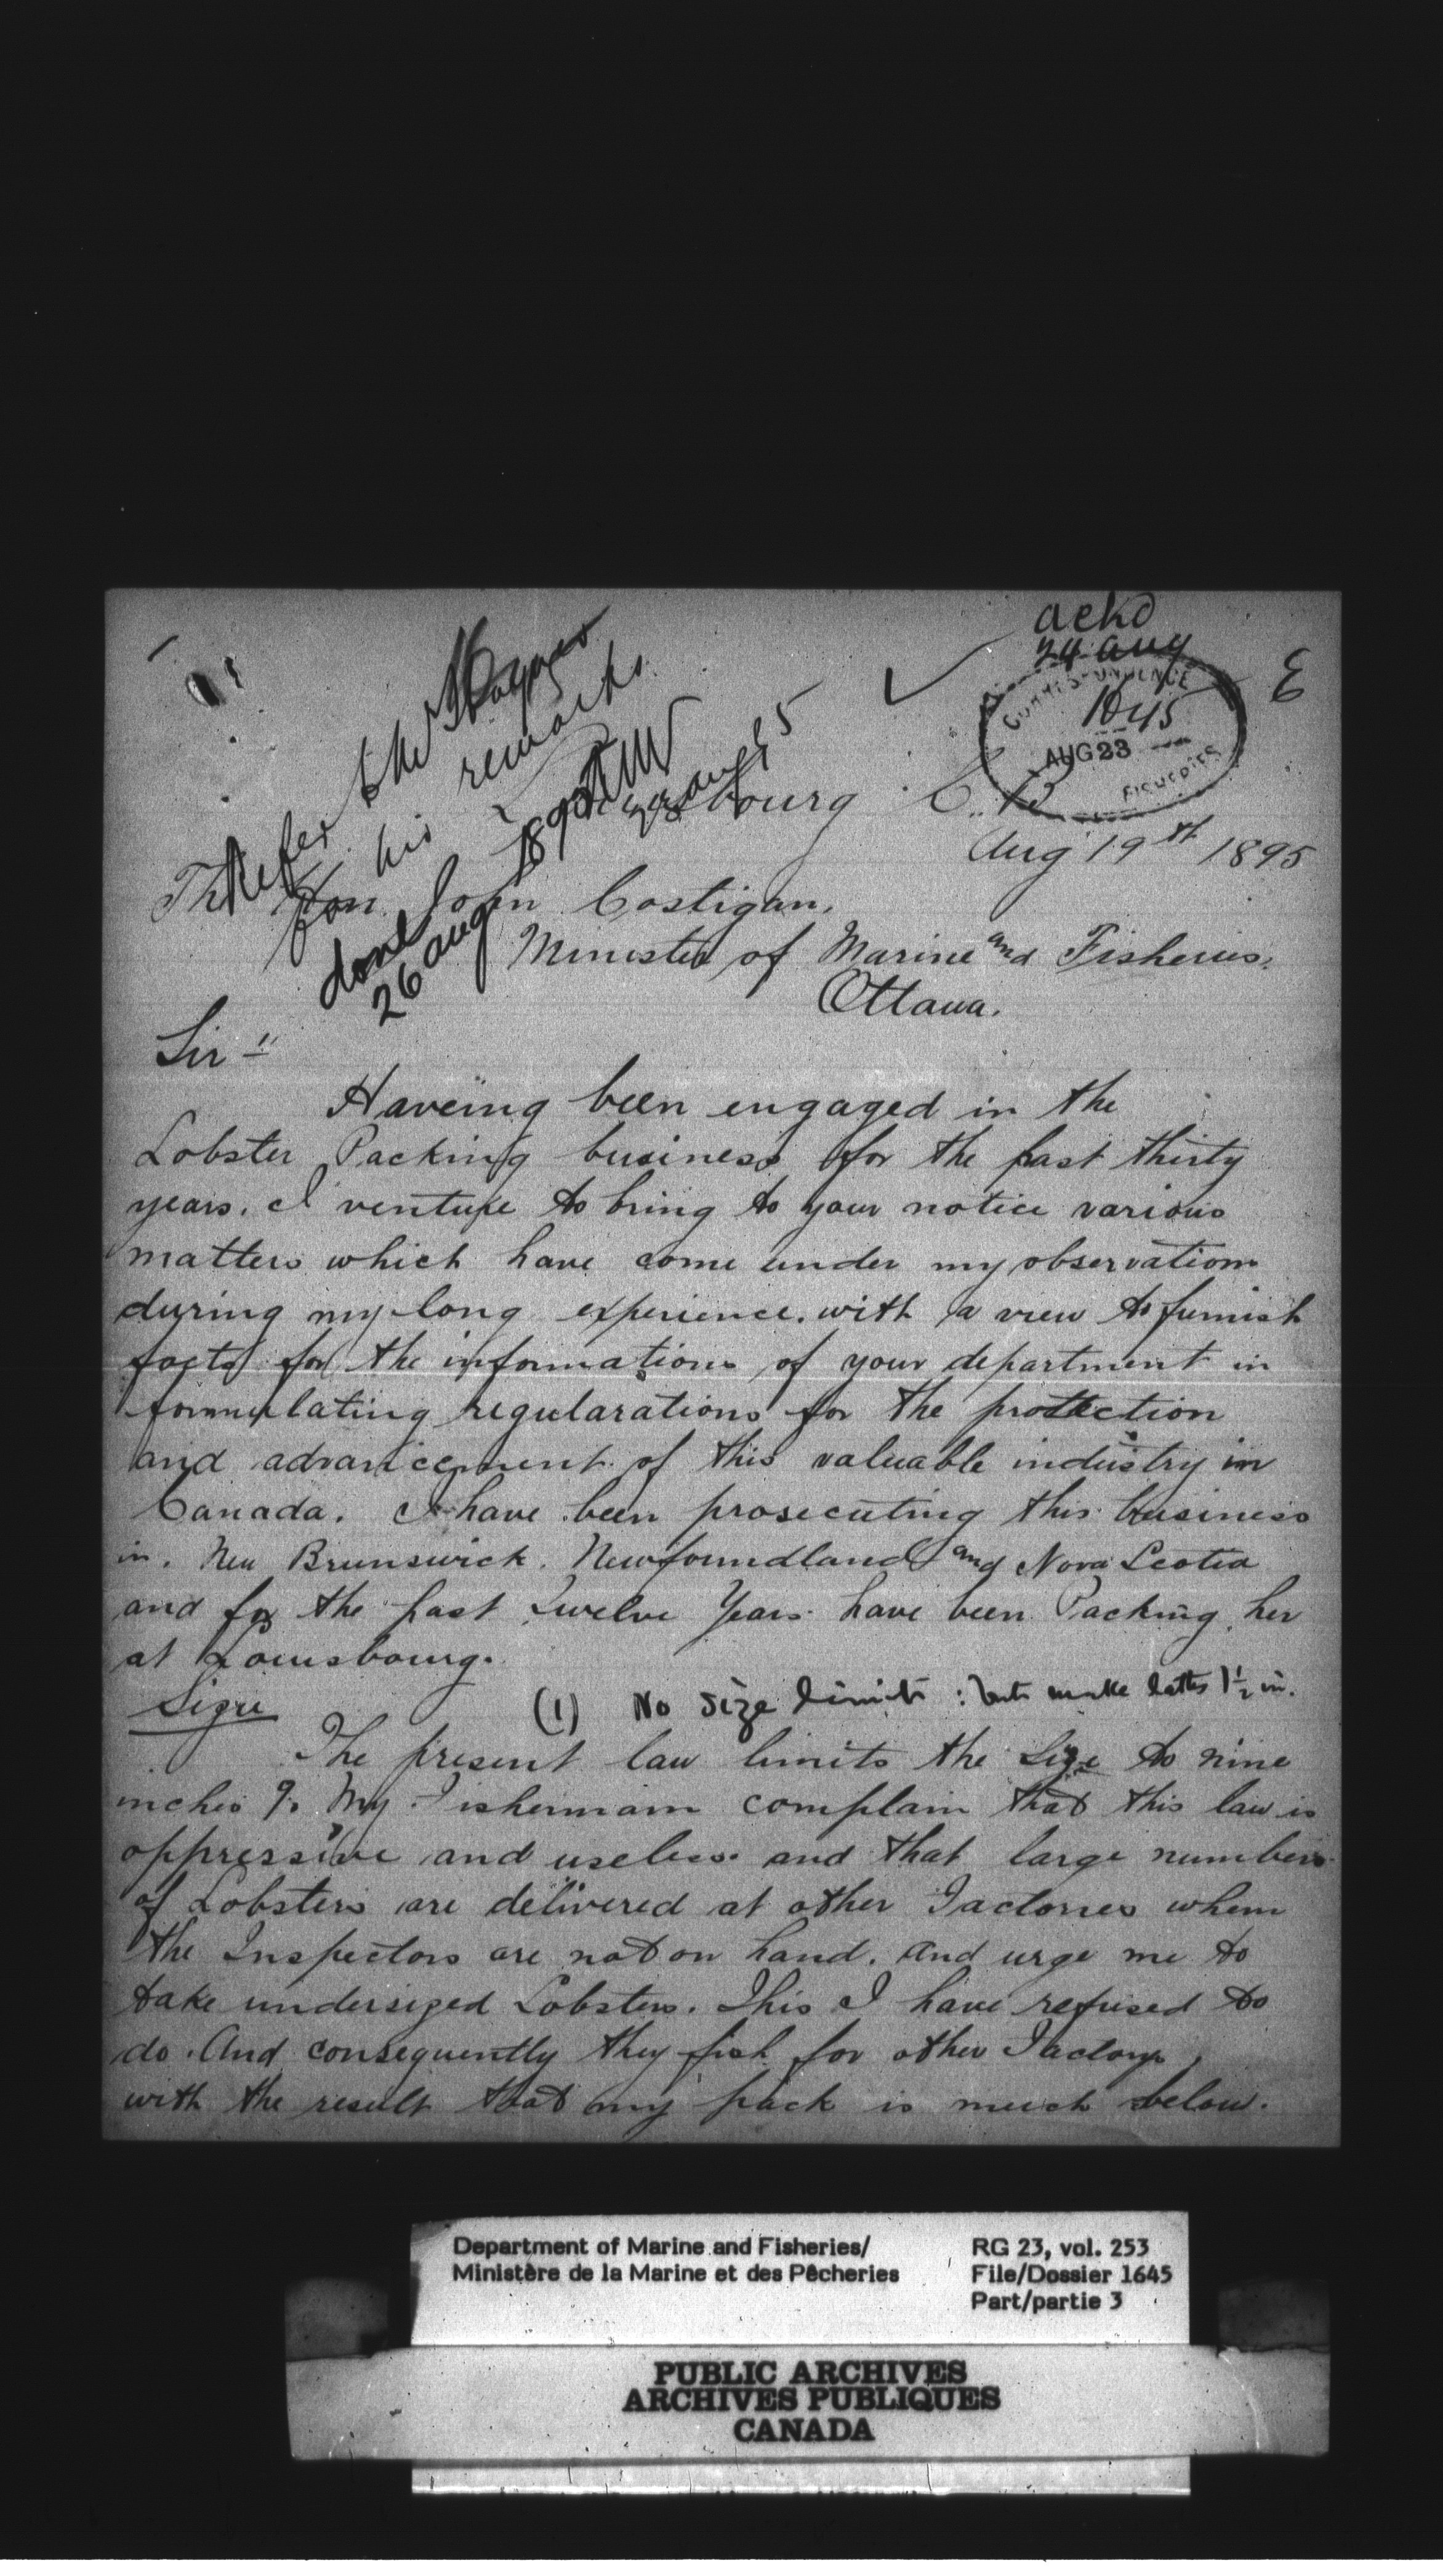 ackd
24 aug
CORRESPONDENCE
1645
AUG 23
FISHERIES
E
Refer the
for his remarks
23 aug 95
done
26 aug 1895
Louisbourg C. B
Aug 19th 1895
The Hon. John Costigan,
Minister of Marine and Fisheries,
Ottawa.
Sir "
Haveing been engaged in the
Lobster Packing business for the past thirty
years. I venture to bring to your notice various
matters which have come under my observation
during my long experience. with a view to furnish
facts for the informations of your department in
formulating regularations for the protection
and advancement of this valuable industry in
Canada. I have been prosecuting this business
in. New Brunswick. Newfoundland and Nova Scotia
and for the past twelve Years have been Packing her
at Louisbourg.
Size
(1) No size limit : but make laths 1½ in.
The present law limits the Size to nine
inches 9. My Fishermam complain that this law is
oppressive and useless and that large numbers
of Lobsters are delivered at other Factories when
the Inspectors are not on hand. and urge me to
take undersized Lobsters. This I have refused to
do. And consequently they fish for other Factorys
with the result that my pack is much below.
Department of Marine and Fisheries/
Ministère de la Marine et des Pêcheries
RG 23, vol. 253
File/Dossier 1645
Part/partie 3
PUBLIC ARCHIVES
ARCHIVES PUBLIQUES
CANADA